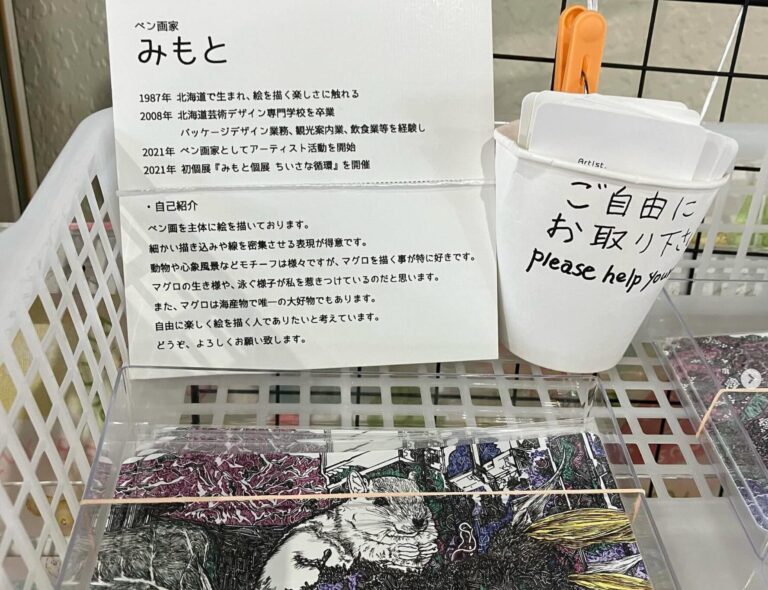 ペン画家
みもと
1987年 北海道で生まれ、絵を描く楽しさに触れる
2008年 北海道芸術デザイン専門学校を卒業
パッケージデザイン業務、観光案内業、飲食業等を経験し
2021年 ペン画家としてアーティスト活動を開始
2021年 初個展『みもと個展 ちいさな循環』を開催
・自己紹介
ペン画を主体に絵を描いております。
細かい描き込みや線を密集させる表現が得意です。
動物や心象風景などモチーフは様々ですが、マグロを描く事が特に好きです。
マグロの生き様や、泳ぐ様子が私を惹きつけているのだと思います。
また、マグロは海産物で唯一の大好物でもあります。
自由に楽しく絵を描く人でありたいと考えています。
どうぞ、よろしくお願い致します。
Artist.
ご自由に
お取り下さ
please help you